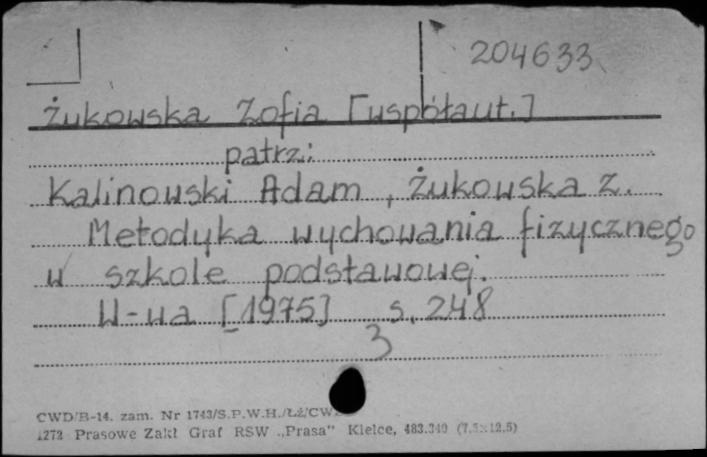 204633
Żukowska Zofia [współaut.]
patrz:
Kalinowski Adam, Żukowska Z.
Metodyka wychowania fizycznego
w szkole podstawowej.
W-wa [1975] s. 248
3
CWD/B-14. zam. Nr 1743/S.P.W.H./Łż/CW
1272 Prasowe Zakł Graf RSW „Prasa" Kielce, 483.340 (7.5x12.5)